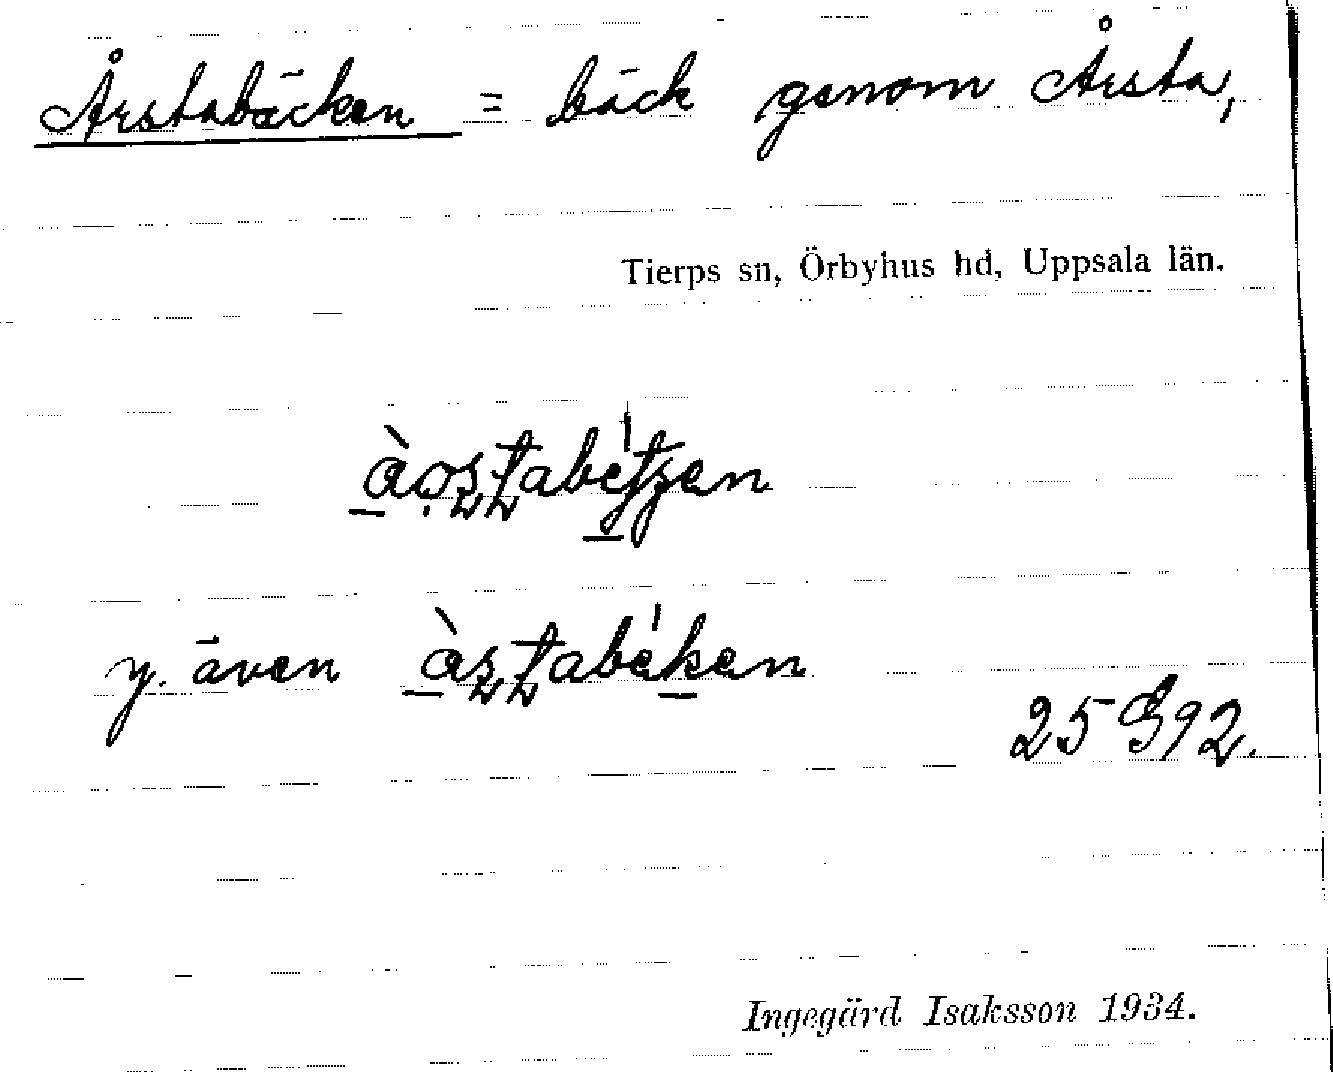 Årstabäcken = bäck genom Årsta,
Tierps sn, Örbyhus hd, Uppsala län.
y. även
25 G 92.
Ingegärd Isaksson 1934.